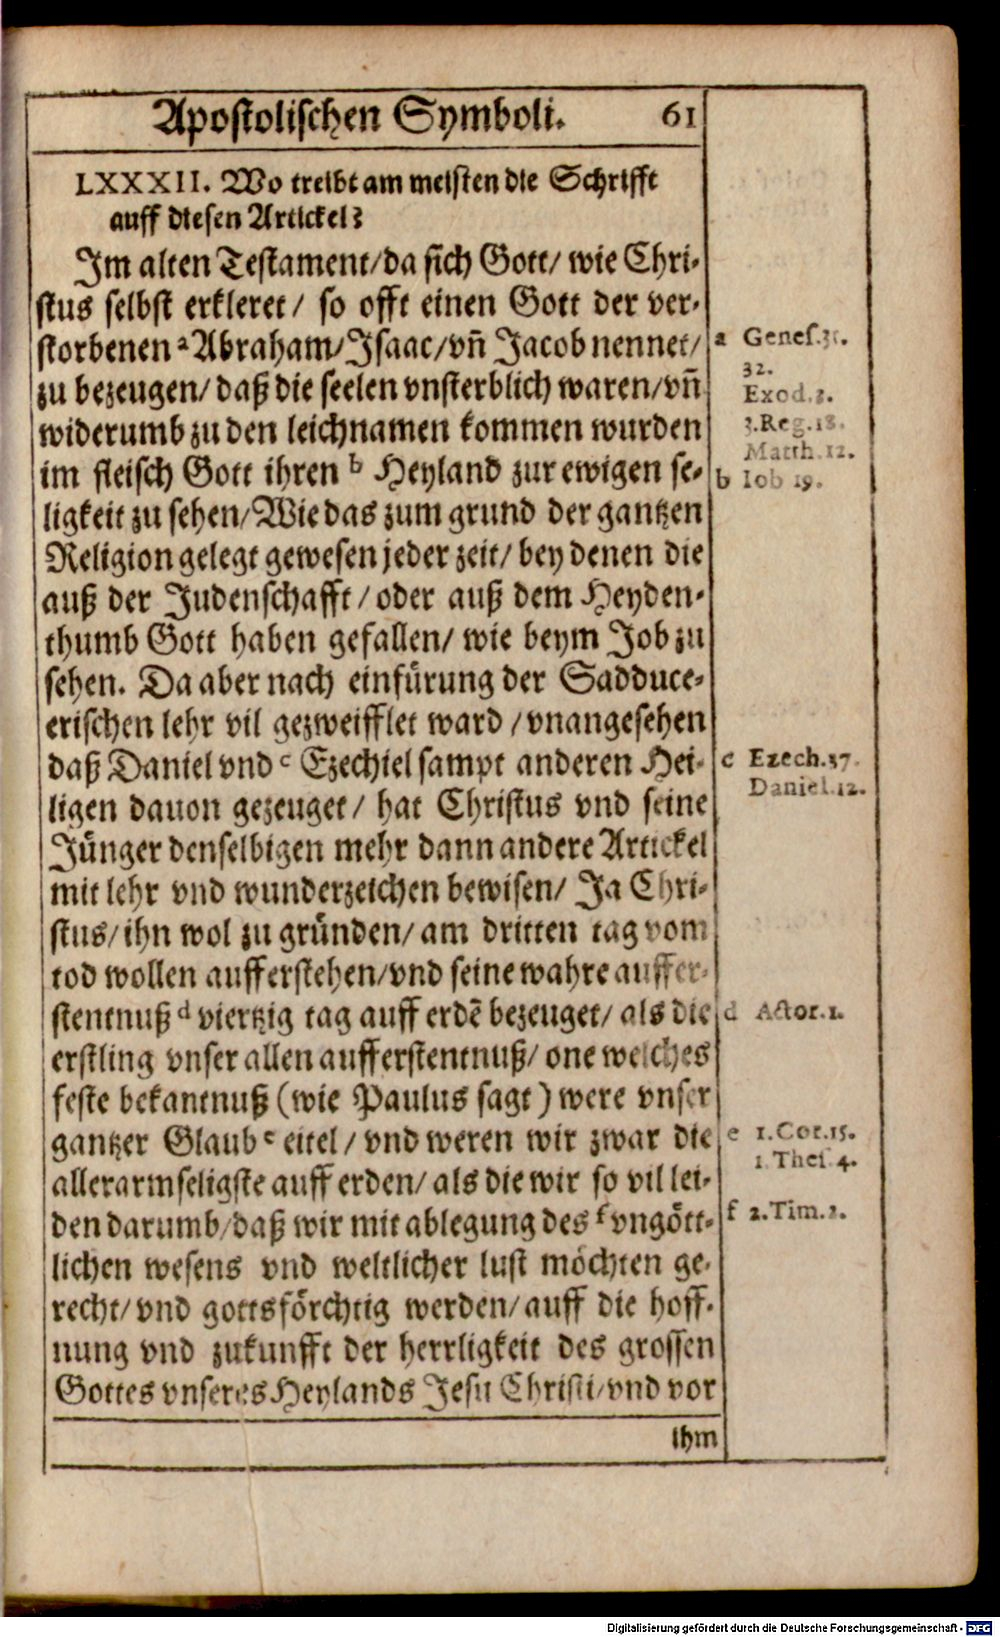 Apostolischen Symboli. 61
LXXXII. Wo treibt am meisten die Schrifft
auff diesen Artickel?
Im alten Testament/da sich Gott/ wie Chri-
stus selbst erkleret/ so offt einen Gott der ver-
storbenen a Abraham/Isaac/vn̄ Jacob nennet/
zu bezeugen/daß die seelen vnsterblich waren/vn̄
widerumb zu den leichnamen kommen wurden
im fleisch Gott ihren b Heyland zur ewigen se-
ligkeit zu sehen/Wie das zum grund der gantzen
Religion gelegt gewesen jeder zeit/ bey denen die
auß der Judenschafft/oder auß dem Heyden-
thumb Gott haben gefallen/ wie beym Job zu
sehen. Da aber nach einfürung der Sadduce-
erischen lehr vil gezweifflet ward /vnangesehen
daß Daniel vnd c Ezechiel sampt anderen Hei-
ligen dauon gezeuget/ hat Christus vnd seine
Jünger denselbigen mehr dann andere Artickel
mit lehr vnd wunderzeichen bewisen/ Ja Chri-
stus/ihn wol zu gründen/am dritten tag vom
tod wollen aufferstehen/vnd seine wahre auffer-
stentnuß d viertzig tag auff erdē bezeuget/als die
erstling vnser allen aufferstentnuß/one welches
feste bekantnuß (wie Paulus sagt) were vnser
gantzer Glaub e eitel/vnd weren wir zwar die
allerarmseligste auff erden/als die wir so vil lei-
den darumb/daß wir mit ablegung des f vngött-
lichen wesens vnd weltlicher lust möchten ge-
recht/vnd gottsförchtig werden/auff die hoff-
nung vnd zukunfft der herrligkeit des grossen
Gottes vnseres Heylands Jesu Christi/vnd vor
ihm
a Genes.31.
32.
Exod.3.
3.Reg.18.
Matth.12.
b Iob 19.
c Ezech.37.
Daniel.12.
d Actor.1.
e 1.Cor.15.
1.Thes.4.
f 2.Tim.2.
Digitalisierung gefördert durch die Deutsche Forschungsgemeinschaft - DFG